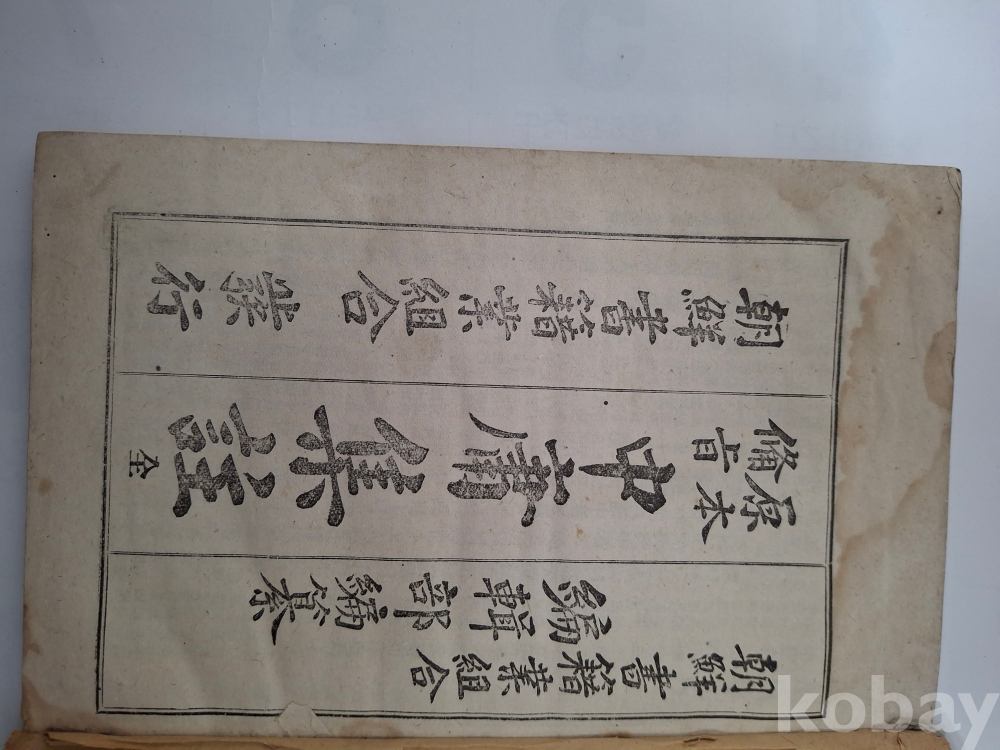 朝鮮書籍業組合
編輯部編纂
原本
備旨
中庸集註 全
朝鮮書籍業組合 發行
kobay